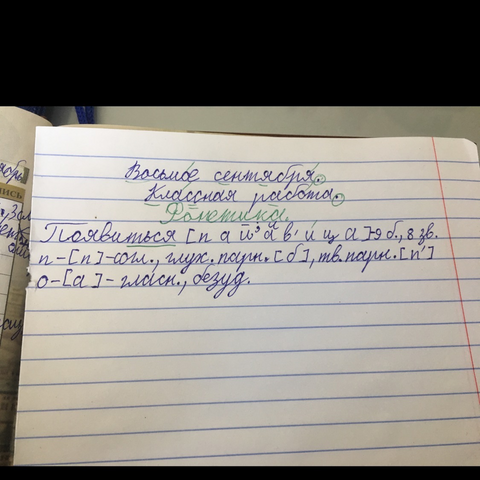 Восьмое сентября.
Классная работа.
Фонетика
Появиться [п а й' а́ в' и ц а]-9 б., 8 зв.
п-[п]-согл., глух. парн. [б], тв. парн. [п']
о-[а]-гласн., безуд.